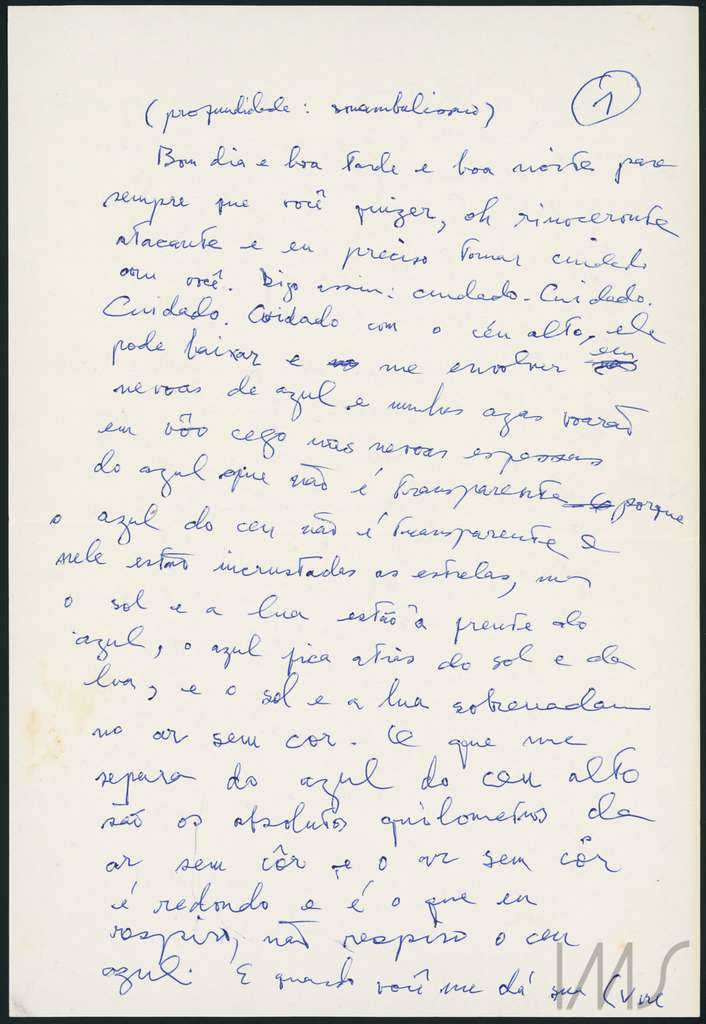 (profundidade: sonambulismo) 1
Bom dia e boa tarde e boa noite para
sempre que você quizer, oh rinoceronte
atacante e eu preciso tomar cuidado
com você. Digo assim: cuidado. Cuidado.
Cuidado. Cuidado com o céu alto, ele
pode baixar e me envolver em
nevoas de azul e minhas azas voarão
em vôo cego nas nevoas espessas
do azul que não é transparente porque
o azul do ceu não é transparente e
nele estão incrustadas as estrelas, mas
o sol e a lua estão à frente do
azul, o azul fica atrás do sol e da
lua, e o sol e a lua sobrenadam
no ar sem cor. O que me
separa do azul do ceu alto
são os absolutos quilometros de
ar sem côr e o ar sem côr
é redondo e é o que eu
respiro, não respiro o ceu
azul. E quando você me dá sua (Vire
IMS